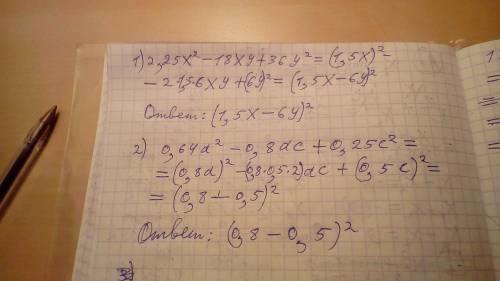 1) 2,25x² - 18xy + 36y² = (1,5x)² -
- 2·1,5·6xy + (6y)² = (1,5x - 6y)²
Ответ: (1,5x - 6y)²
2) 0,64d² - 0,8dc + 0,25c² =
= (0,8d)² - (0,8·0,5·2)dc + (0,5c)² =
= (0,8 - 0,5)²
Ответ: (0,8 - 0,5)²
3)